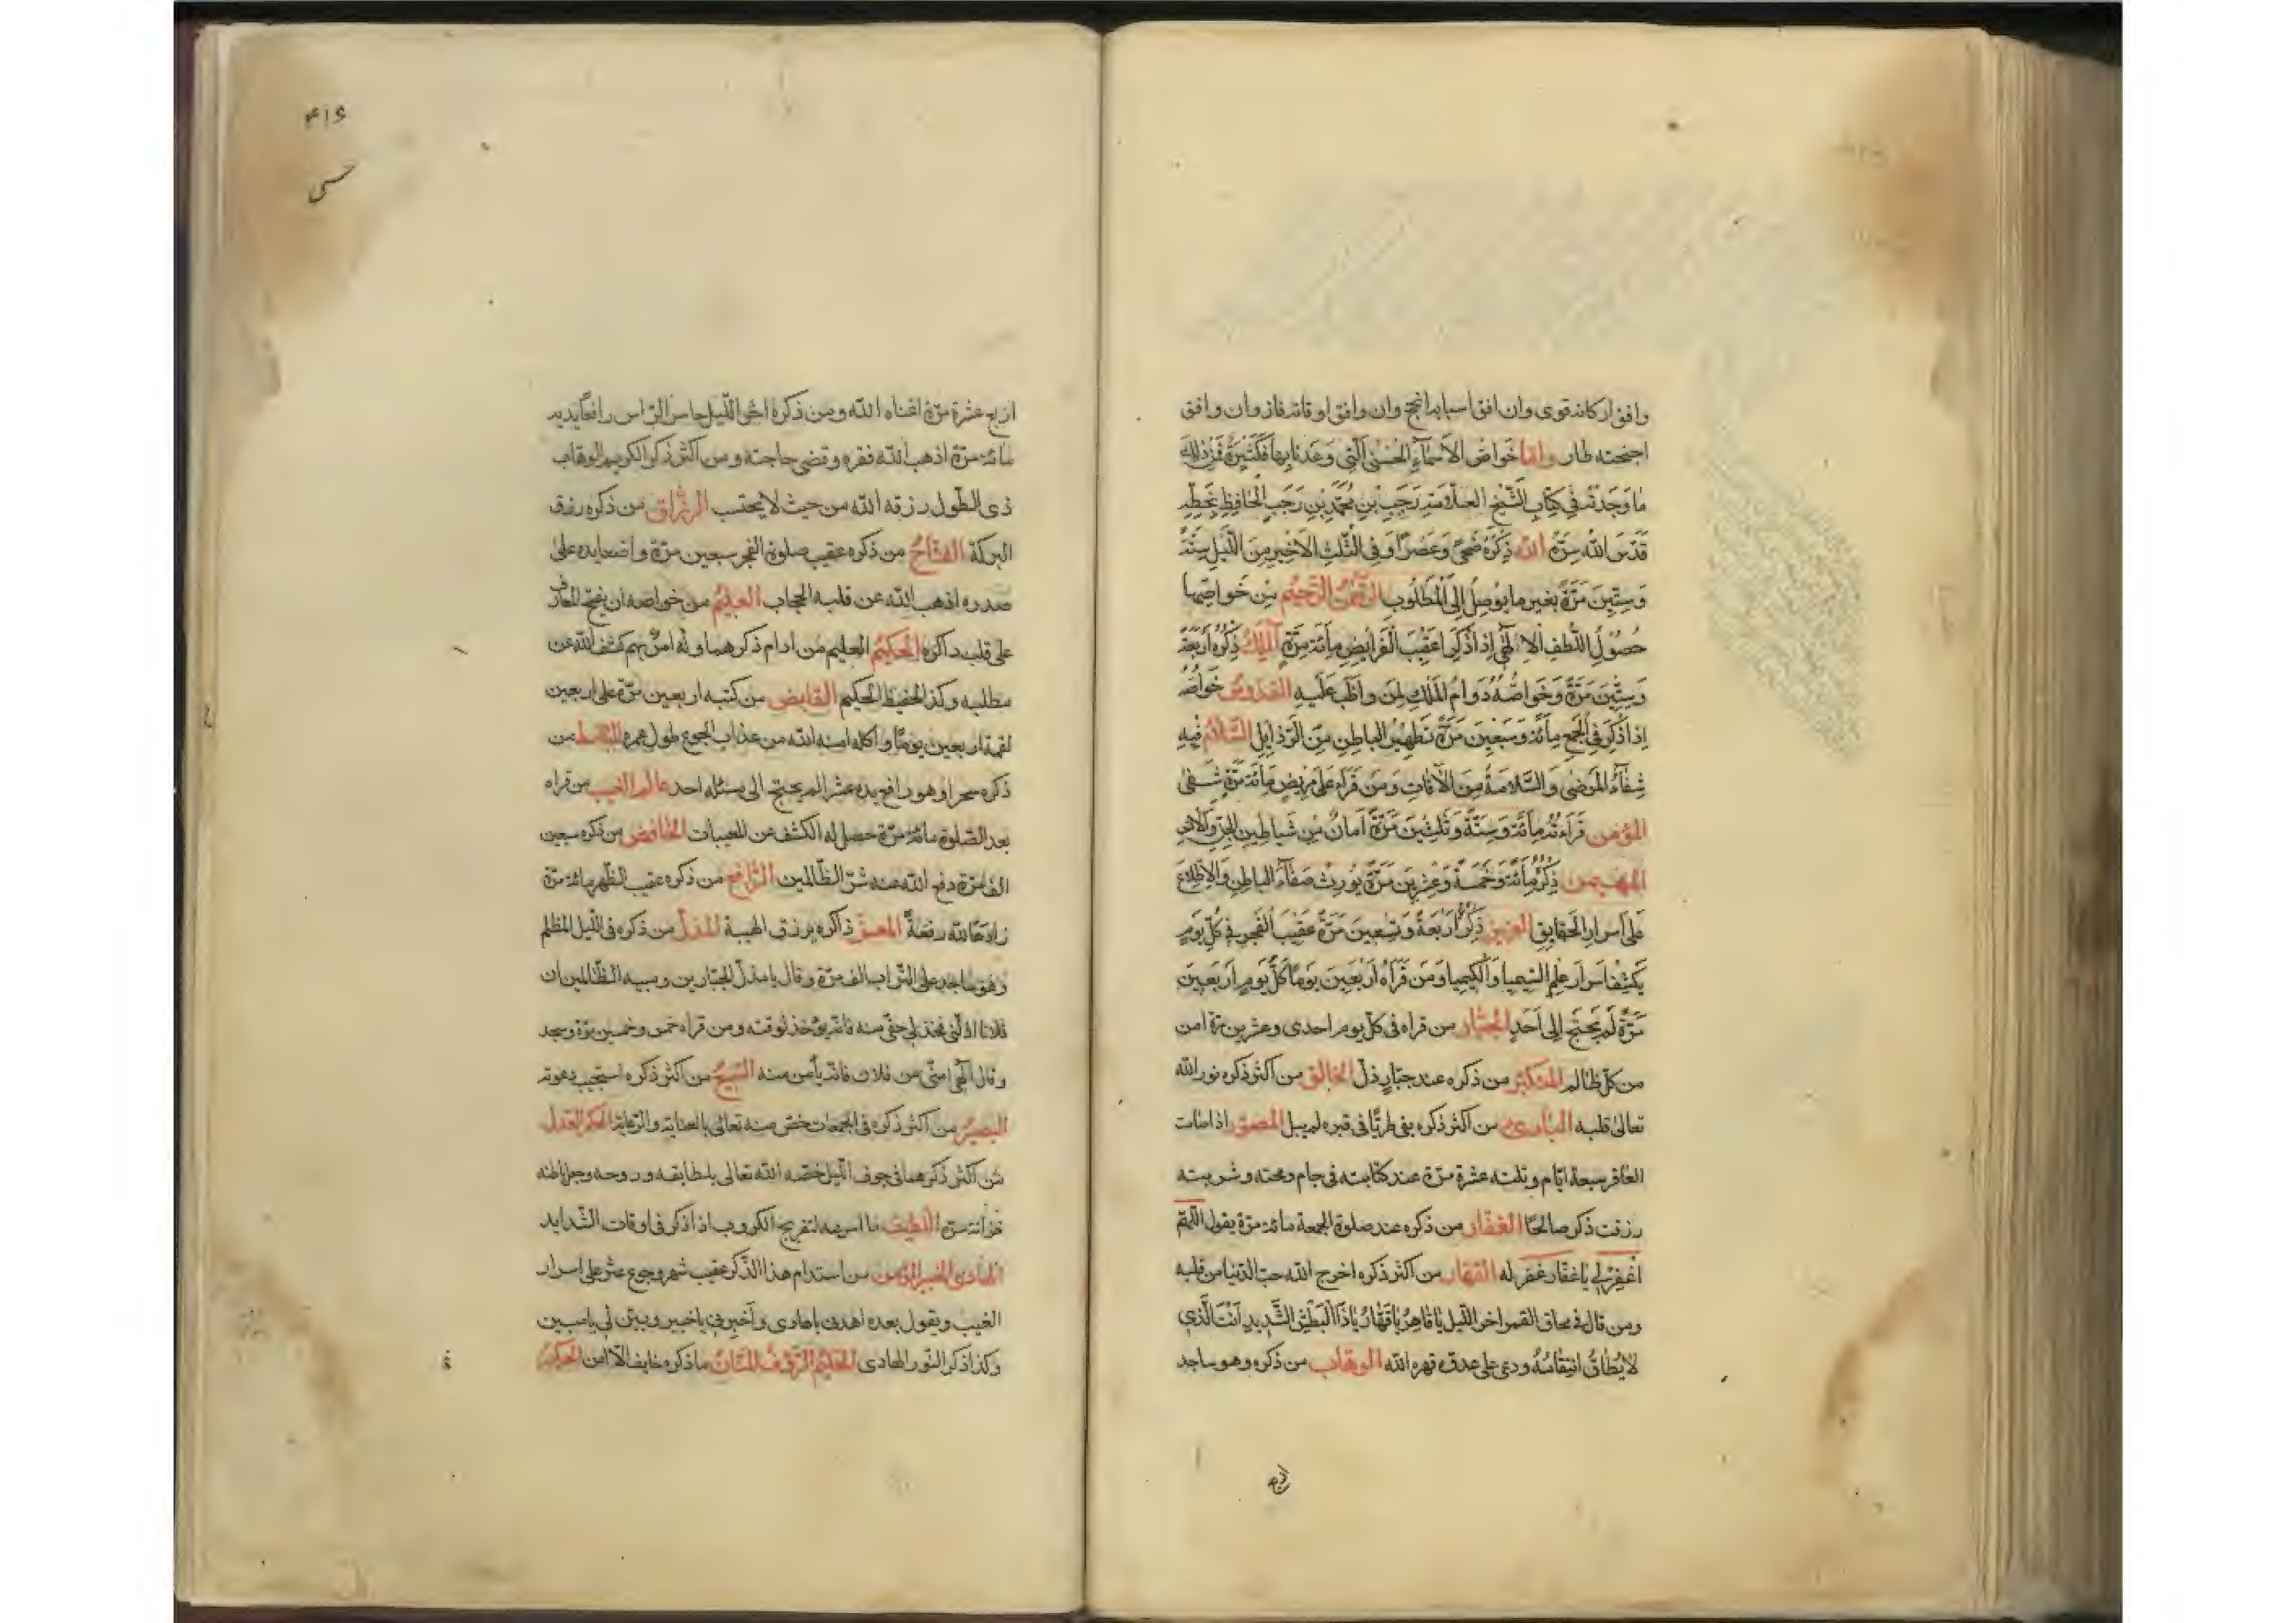 وافق اركانه قوى وان وافق اسبابه انجح وان وافق اوقاته فاز وان وافق
اجنحته طار واما خَواصّ الاَسْمآءِ الحُسْنىٰ الَّتي وَعَدْنا بِها فَكَثيرَةٌ فَمِنْ ذلِكَ
ما وَجَدْتُه في كِتابِ الشَّيْخِ العلّامَةِ رَجَبِ بنِ مُحَمَّدِ بنِ رَجَبٍ الْحافِظِ بِخَطِّهِ
قَدَّسَ اللهُ سِرَّهُ الله ذِكْرُهُ ضُحىً وَعَصْراً وَفي الثُّلْثِ الاَخيرِ مِنَ اللَّيْلِ سِتَّةً
وَسِتّينَ مَرَّةً بغير ما يُوصِلُ اِلَى الْمَطْلُوبِ الرَّحْمٰنُ الرَّحيمُ مِنْ خَواصِّهِما
حُصُولُ اللُّطفِ الاِلٰهيِّ اِذا ذُكِرا عَقيبَ الْفَرايِضِ مِائَةَ مَرَّةٍ الْمَلِكُ ذِكْرُهُ اَرْبَعَةً
وَسِتّينَ مَرَّةً وَخَواصُّهُ دَوامُ الْمُلْكِ لِمَنْ واظَبَ عَلَيْهِ القدّوسُ خَواصُّهُ
اِذا ذُكِرَ في الجُمَعِ مِائَةً وَسَبْعينَ مَرَّةً تَطْهيرُ الباطِنِ مِنَ الرَّذايِلِ السَّلامُ فيهِ
شِفآءُ المَرْضىٰ وَالسَّلامَةُ مِنَ الآفاتِ وَمَنْ قَرَأَهُ عَلى مَريضٍ مِائَةَ مَرَّةٍ شُفِيَ
المؤمن قَراءَتُه مِائَةً وَسِتَّةً وَثَلٰثينَ مَرَّةً اَمانٌ مِنْ شَياطينِ الجِنِّ وَالاِنْسِ
المهيمن ذِكْرُهُ مِائَةً وَخَمْسَةً وَعِشْرينَ مَرَّةً يُورِثُ صَفآءَ الباطِنِ وَالاِطِّلاعَ
عَلى اَسْرارِ الحَقايِقِ العزيز ذِكْرُهُ اَرْبَعَةً وَتِسْعينَ مَرَّةً عَقيبَ الْفَجْرِ في كُلِّ يَوْمٍ
يَكْشِفُ اَسْرارَ عِلْمِ السّيميا وَالْكيميا وَمَنْ قَرَأَهُ اَرْبَعينَ يَوْماً كُلَّ يَوْمٍ اَرْبَعينَ
مَرَّةً لَمْ يَحْتَجْ اِلى اَحَدٍ الجبّار من قراه في كلّ يوم احدى وعشرين مرة امن
من كلّ ظالم المتكبّر من ذكره عند جبّارٍ ذلّ الخالق من اكثر ذكره نور الله
تعالى قلبه البارئ من اكثر ذكره بقى طريّا في قبره لم يبل المصوّر اذا صامت
العاقر سبعة ايّام وتلته عشرة مرّة عند كتابته في جام ومحته وشربته
رزقت ذكرا صالحًا الغفّار من ذكره عند صلوة الجمعة مائة مرّة يقول اللّهمّ
اغْفِرْ لي يا غفّار غفر له القهّار من اكثر ذكره اخرج الله حبّ الدّنيا من قلبه
ومن قال في محاق القمر اخر اللّيل يا قاهِرُ يا قَهّارُ يا ذَا الْبَطْشِ الشَّديدِ اَنْتَ الَّذي
لا يُطاقُ انْتِقامُهُ ودعى على عدوّه قهره الله الوهّاب من ذكره وهو ساجد
اربع
اربع عشرة مرّة اغناه الله ومن ذكره اخر اللّيل حاسر الرّاس رافعًا يديه
مائة مرّة اذهب الله فقره وقضى حاجته ومن اكثر ذكر الكريم الوهّاب
ذى الطّول رزقه الله من حيث لا يحتسب الرزّاق من ذكره رزق
البركة الفتّاحُ من ذكره عقيب صلوة الفجر سبعين مرّة واضعا يده على
صدره اذهب الله عن قلبه الحجاب العليمُ من خواصه ان يفتح المعارف
على قلب ذاكره الحكيمُ العليم من ادام ذكرهما وله امرٌ مهم كشف الله عن
مطلبه وكذا الحفيظ الحكيم القابض من كتبه اربعين مرّة على اربعين
لقمة اربعين يومًا واكله امنه الله من عذاب الجوع طول عمره الباسط من
ذكره سحرا وهو رافع يده عشرا لم يحتج الى مسئلة احد عالم الغيب من قراه
بعد الصّلوة مائة مرّة حصل له الكشف عن المغيبات الخافض من ذكره سبعين
الف مرّة دفع الله عنه شرّ الظّالمين الرّافع من ذكره عقيب الظّهر مائة مرّة
زاده الله رفعةً المعزّ ذاكره يرزق الهيبة المذلّ من ذكره في اللّيل المظلم
وهو ساجد على التّراب الف مرّة وقال يا مذلّ الجبّارين ومبيد الظّالمين ان
فلانا اذلّنى فخذ لي حقّى منه فانه يؤخذ لوقته ومن قراه خمس وخمسين مرّة وسجد
وقال الٰهى امنّى من فلان فانّه يأمن منه السّميعُ من اكثر ذكره استجيب دعوته
البصيرُ من اكثر ذكره في الجمعات خصّ منه تعالى بالعناية والرّعاية الحكم العدل
من اكثر ذكرهما في جوف اللّيل خصّه الله تعالى بلطايفه وروحه وجعل باطنه
خزانة سرّه اللّطيف ما اسرعه لتفريج الكروب اذا ذكر في اوقات الشّدايد
الهادى الخبير المؤمن من استدام هذا الذّكر عقيب شهر وجوع عثر على اسرار
الغيب ويقول بعده اهدنى يا هادى وأخبرنى يا خبير وبيّن لي يا مبين
وكذا ذكر النّور الهادى الحَليمُ الرّؤفُ المنّانُ ما ذكره خايف الّا امن الحكيمُ